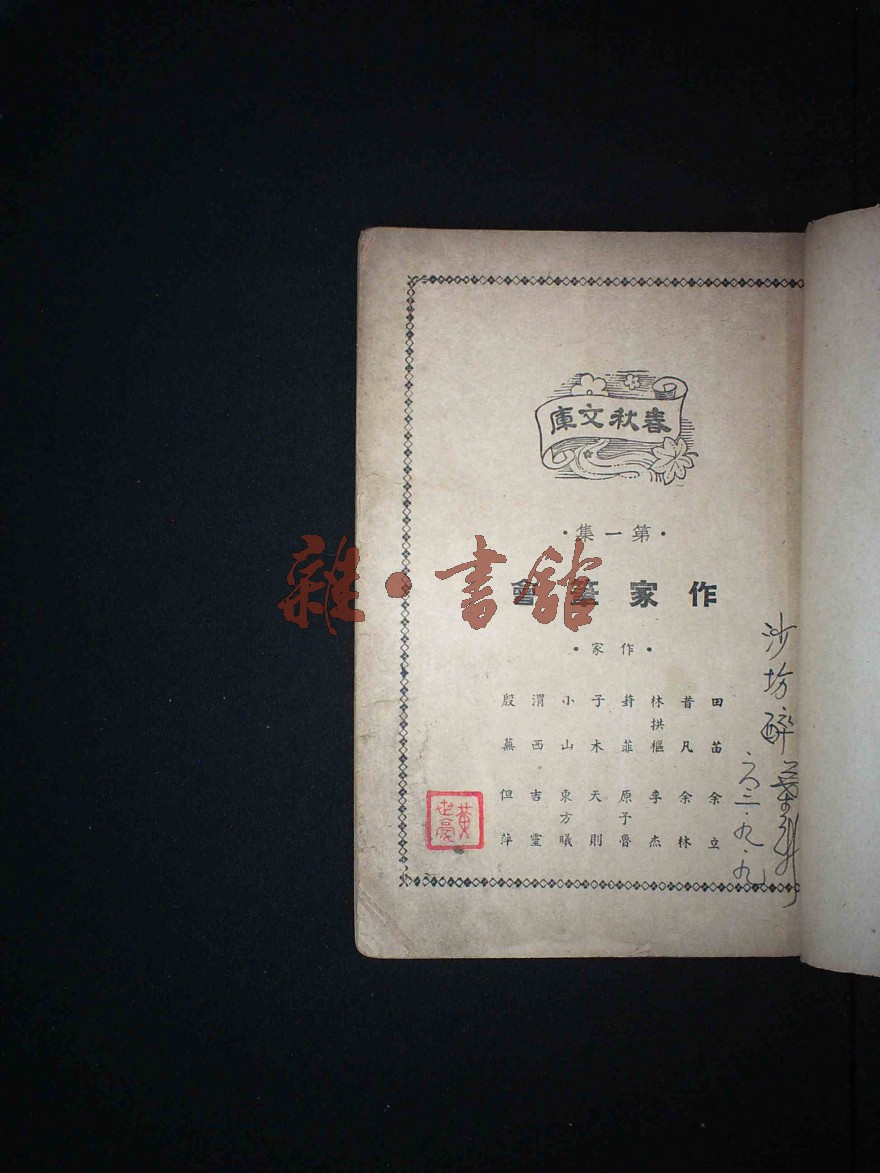 春秋文庫
·第一集·
作家筆會
·作家·
田苗 余立
昔凡 余林
林拱樞 李杰
葑菲 原子魯
子木 天則
小山 東方曦
渭西 吉靈
殷蕪 但萍
沙坊醉
六三·九·九
黃
雜·書館